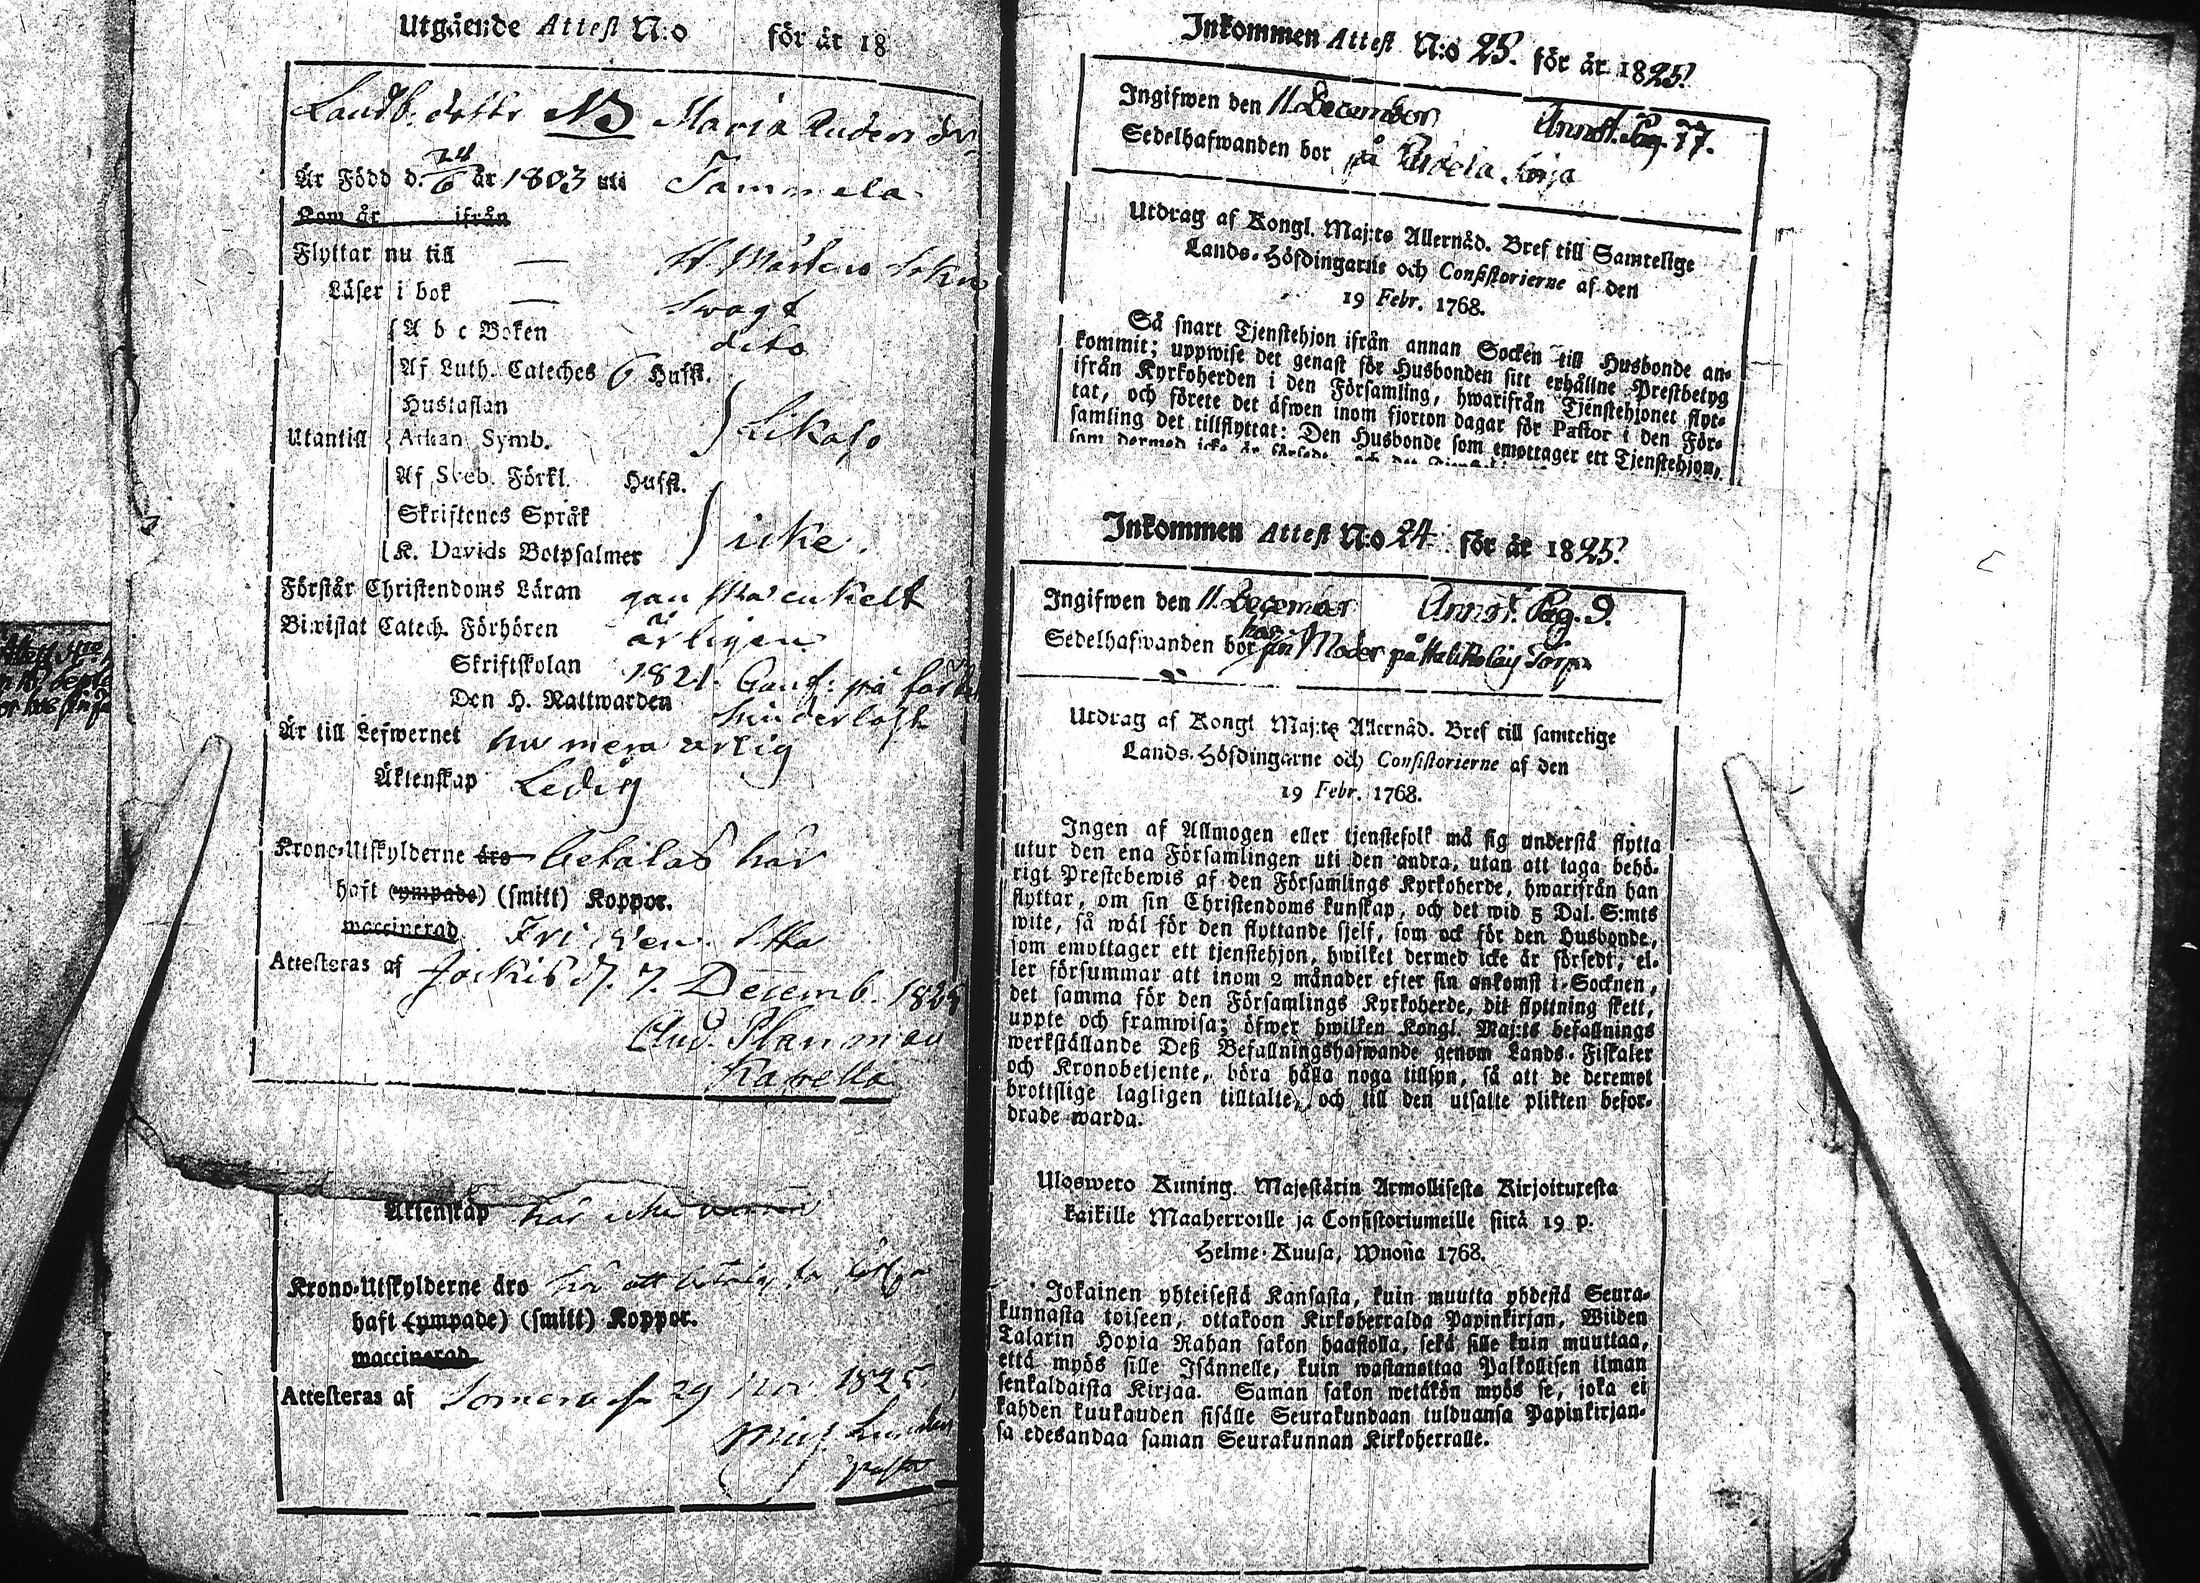 Utgående Attest N:o för år 18
Landb. dottr NB Maria Anders dr
Är Född d. 24/6 år 1803 uti Tammela
Kom år ifrån
Flyttar nu till — St Mårtens Sokn
Läser i bok — swagt
A b c Boken dito
Af Luth. Cateches 6 Huffst.
Hustaflan
Utantill Athan Symb. likaså
Af Sveb. Förkl. Huffst.
Skriftenes Språk
K. Davids Botpsalmer icke.
Förstår Christendoms Läran ganska enkelt
Biwistat Catech. Förhören årligen
Skriftskolan 1821.
Den H. Nattwarden
Är till Lefwernet nu mera ärlig
Äktenskap Ledig
Krono-Utskylderne äro betalas här
haft (ympade) (smitt) Koppor.
waccinerad
Attesteras af Jockis d. 7. Decemb. 1825
Aud. Planman
Äktenskap har icke
Krono-Utskylderne äro
haft (ympade) (smitt) Koppor.
waccinerad
Attesteras af Somero d 29 Nov 1825
Pastor
Inkommen Attest N:o 25. för år 1825.
Ingifwen den 11 December Annot. Pag. 77.
Sedelhafwanden bor på
Utdrag af Kongl. Maj:ts Allernåd. Bref till Samtelige
Lands-Höfdingarne och Consistorierne af den
19 Febr. 1768.
Så snart Tjenstehjon ifrån annan Socken till Husbonde an-
kommit; uppwise det genast för Husbonden sitt erhållne Prestbetyg
ifrån Kyrkoherden i den Församling, hwarifrån Tjenstehjonet flyt-
tat, och förete det äfwen inom fjorton dagar för Pastor i den För-
samling det tillflyttat: Den Husbonde som emottager ett Tjenstehjon,
som dermed icke är försedt
Inkommen Attest N:o 24. för år 1825.
Ingifwen den 11. December Annot. Pag. 9.
Sedelhafwanden bor hos sin Moder på
Utdrag af Kongl Maj:ts Allernåd. Bref till samtelige
Lands-Höfdingarne och Consistorierne af den
19 Febr. 1768.
Ingen af Allmogen eller tjenstefolk må sig understå flytta
utur den ena Församlingen uti den andra, utan att taga behö-
rigt Prestebewis af den Församlings Kyrkoherde, hwarifrån han
flyttar, om sin Christendoms kunskap, och det wid 5 Dal. S:mts
wite, så wäl för den flyttande sjelf, som ock för den Husbonde,
som emottager ett tjenstehjon, hwilket dermed icke är försedt, el-
ler försummar att inom 2 månader efter sin ankomst i Socknen,
det samma för den Församlings Kyrkoherde, dit flyttning skett,
uppte och framwisa; öfwer hwilken Kongl. Maj:ts befallnings
werkställande Deß Befallningshafwande genom Lands-Fiskaler
och Kronobetjente, böra hålla noga tillsyn, så att de deremot
brottslige lagligen tilltalte, och till den utsatte plikten befor-
drade warda.
Ulosweto Kuning. Majestärin Armollisesta Kirjoituxesta
kaikille Maaherroille ja Consistoriumeille siitä 19 p.
Helme-Kuusa, Wuoña 1768.
Jokainen yhteisestä Kansasta, kuin muutta yhdestä Seura-
kunnasta toiseen, ottakoon Kirkoherralda Papinkirjan, Wiiden
Talarin Hopia Rahan sakon haastolla, sekä sille kuin muuttaa,
että myös sille Isännelle, kuin wastanottaa Palkollisen ilman
senkaldaista Kirjaa. Saman sakon wetäkön myös se, joka ei
kahden kuukauden sisälle Seurakundaan tulduansa Papinkirjan-
sa edesandaa saman Seurakunnan Kirkoherralle.